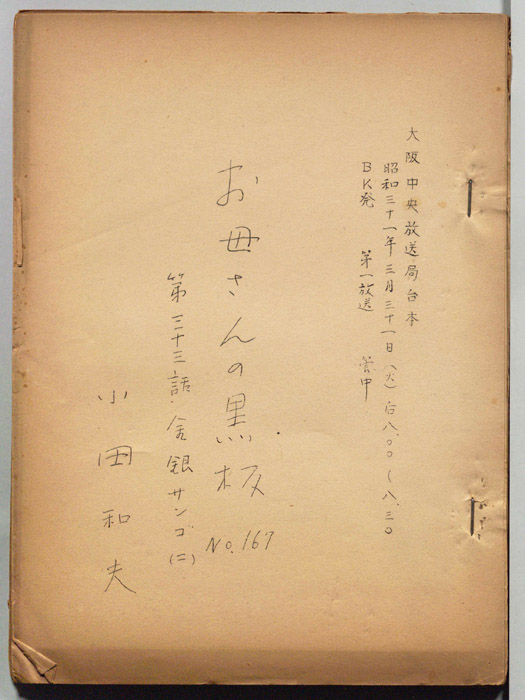 大阪中央放送局台本
昭和三十一年三月三十一日(火)后八.〇〇〜八.三〇
BK発 第一放送 管中
お母さんの黒板 No.167
第三十三話・金銀サンゴ(二)
小田和夫